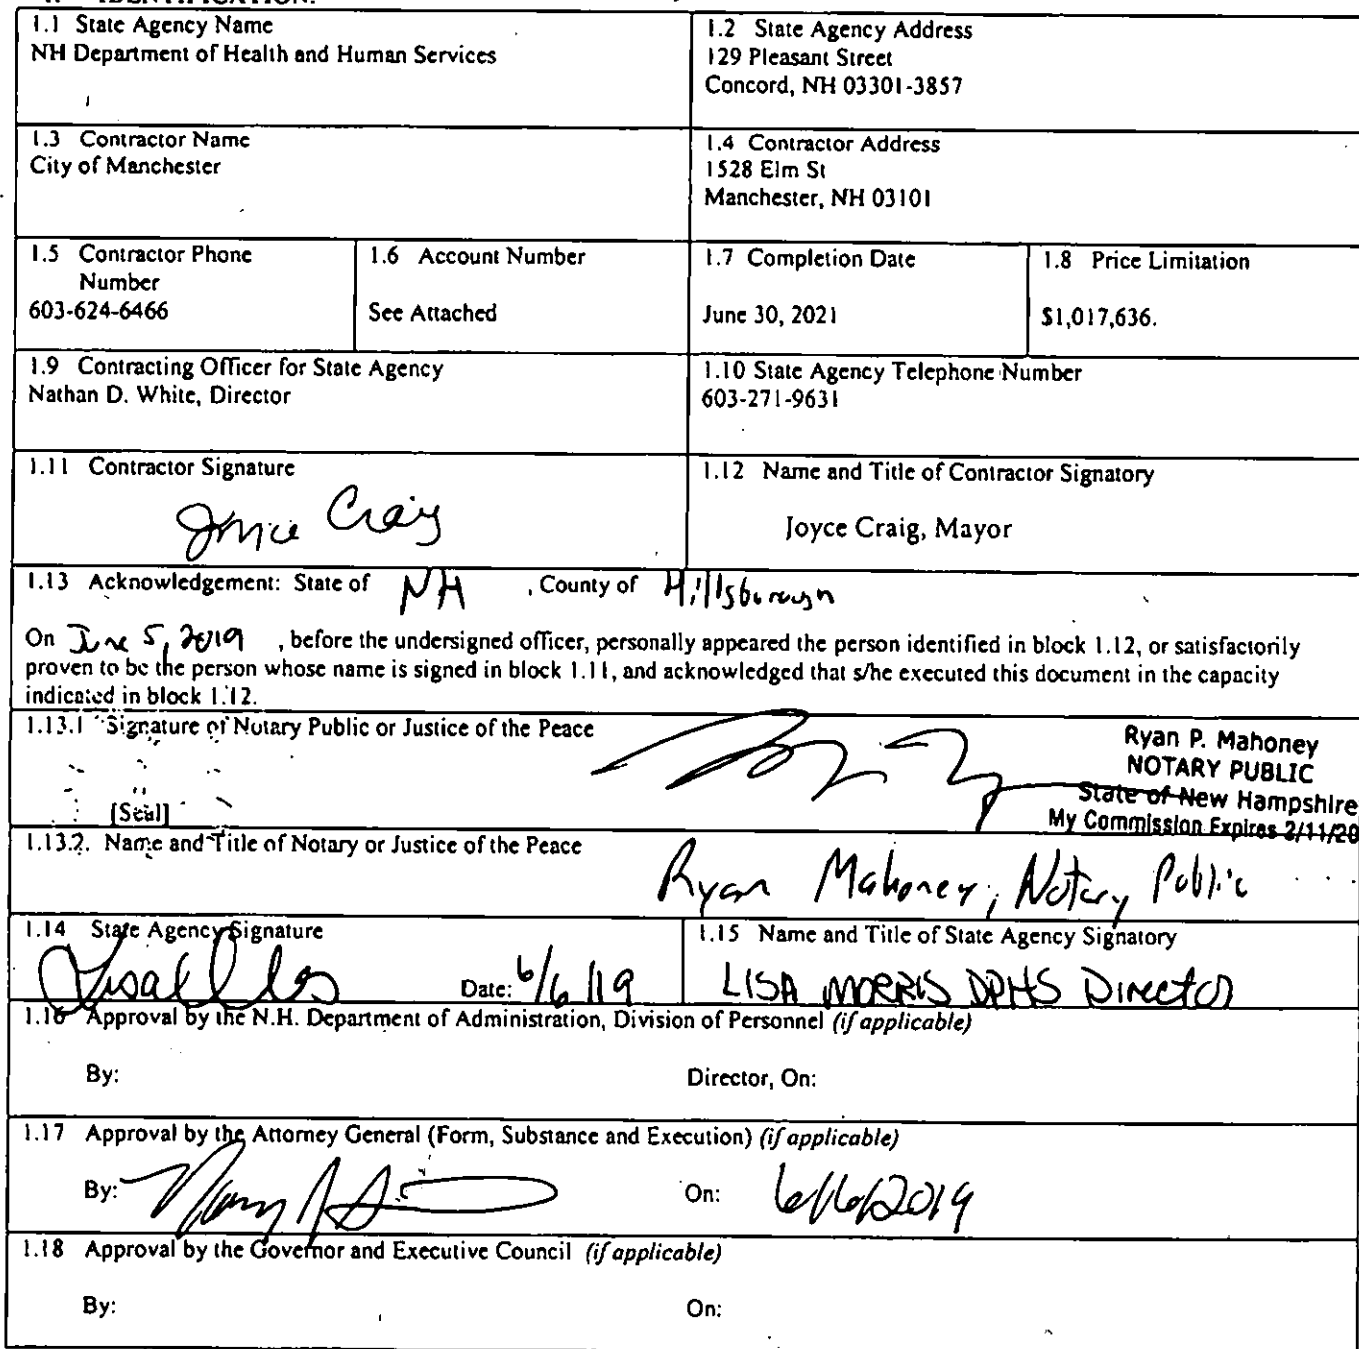 IDENTIFICATION.
1.1 State Agency Name
NH Department of Health and Human Services
1.2 State Agency Address
129 Pleasant Street
Concord, NH 03301-3857
1.3 Contractor Name
City of Manchester
1.4 Contractor Address
1528 Elm St
Manchester, NH 03101
1.5 Contractor Phone
Number
603-624-6466
1.6 Account Number
See Attached
1.7 Completion Date
June 30, 2021
1.8 Price Limitation
$1,017,636.
1.9 Contracting Officer for State Agency
Nathan D. White, Director
1.10 State Agency Telephone Number
603-271-9631
1.11 Contractor Signature
Joyce Craig
1.12 Name and Title of Contractor Signatory
Joyce Craig, Mayor
1.13 Acknowledgement: State of NH , County of Hillsborough
On June 5, 2019 , before the undersigned officer, personally appeared the person identified in block 1.12, or satisfactorily
proven to be the person whose name is signed in block 1.11, and acknowledged that s/he executed this document in the capacity
indicated in block 1.12.
1.13.1 Signature of Notary Public or Justice of the Peace
[Seal]
Ryan P. Mahoney
NOTARY PUBLIC
State of New Hampshire
My Commission Expires 2/11/20
1.13.2. Name and Title of Notary or Justice of the Peace
Ryan Mahoney, Notary Public
1.14 State Agency Signature
Date: 6/6/19
1.15 Name and Title of State Agency Signatory
LISA MORRIS DPHS Director
1.16 Approval by the N.H. Department of Administration, Division of Personnel (if applicable)
By: Director, On:
1.17 Approval by the Attorney General (Form, Substance and Execution) (if applicable)
By: On: 6/6/2019
1.18 Approval by the Governor and Executive Council (if applicable)
By: On: